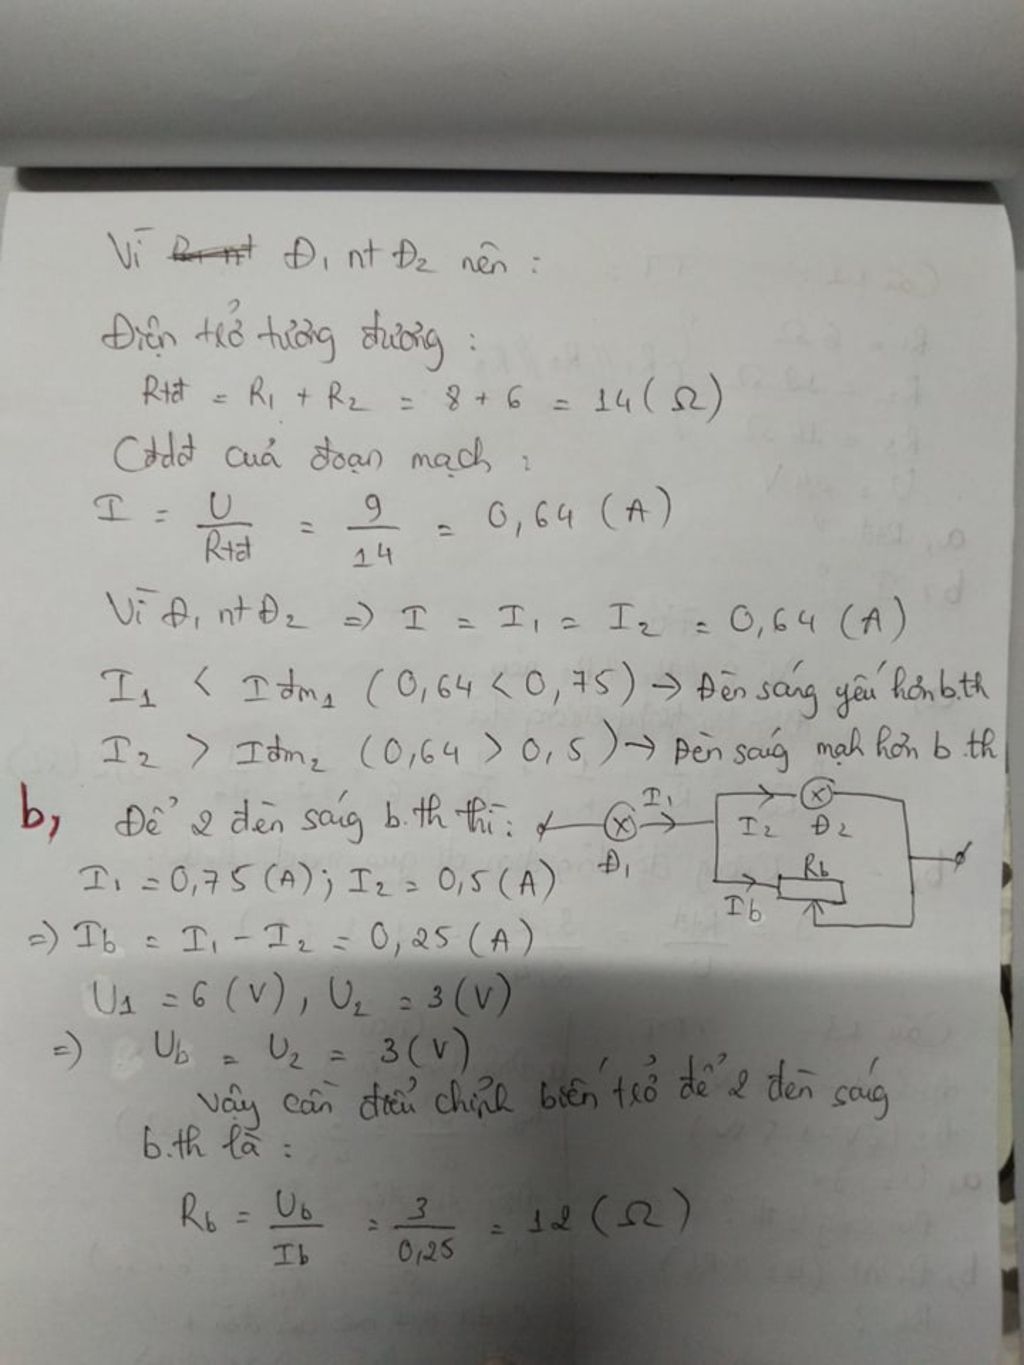 Vì Đ₁ nt Đ₂ nên :
Điện trở tương đương :
Rtđ = R₁ + R₂ = 8 + 6 = 14 (Ω)
Cđdđ của đoạn mạch :
I = U/Rtđ = 9/14 = 0,64 (A)
Vì Đ₁ nt Đ₂ => I = I₁ = I₂ = 0,64 (A)
I₁ < Iđm₁ (0,64 < 0,75) → Đèn sáng yếu hơn b.th
I₂ > Iđm₂ (0,64 > 0,5) → Đèn sáng mạh hơn b.th
b, Để 2 đèn sáng b.th thì :
I₁
Đ₁
I₂
Đ₂
Rb
Ib
I₁ = 0,75 (A) ; I₂ = 0,5 (A)
=> Ib = I₁ - I₂ = 0,25 (A)
U₁ = 6 (V) , U₂ = 3 (V)
=> Ub = U₂ = 3 (V)
Vậy cần điều chỉnh biến trở để 2 đèn sáng
b.th là :
Rb = Ub/Ib = 3/0,25 = 12 (Ω)